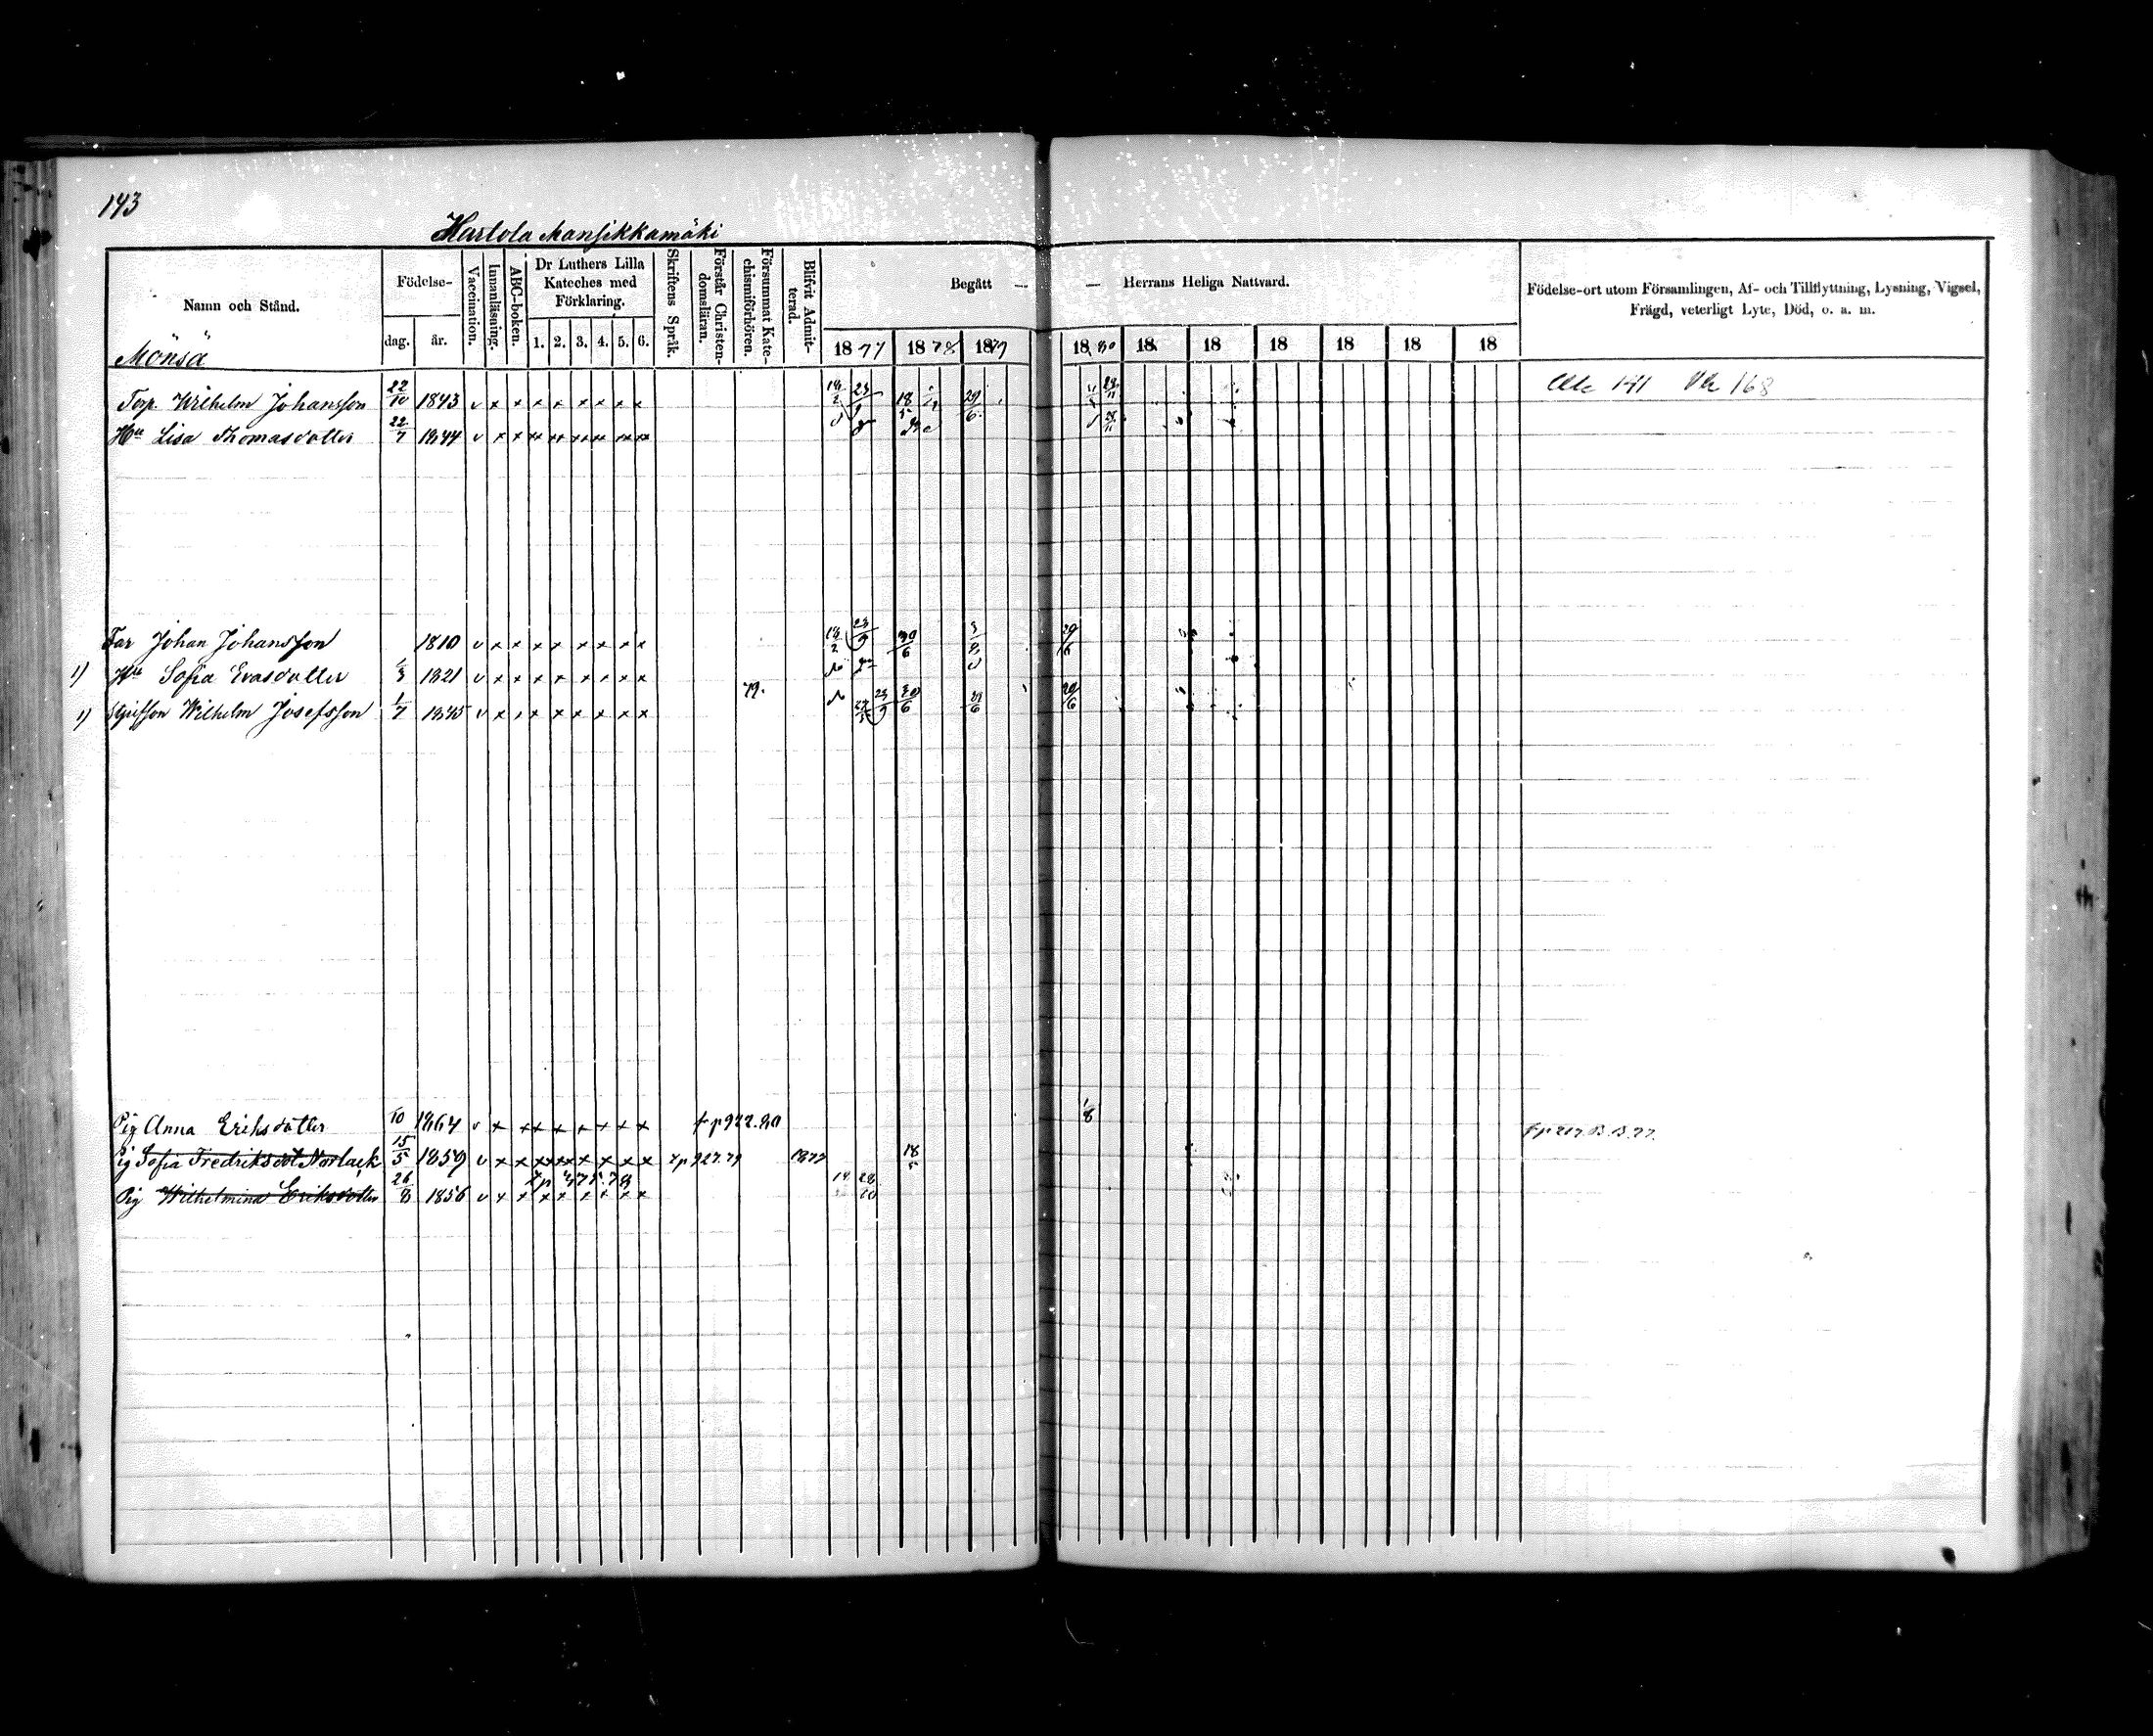 143
Hartola Mansikkamäki
Namn och Stånd.
Födelse-
dag.
år.
Vaccination.
Innanläsning.
ABC-boken.
Dr Luthers Lilla
Kateches med
Förklaring.
1. 2. 3. 4. 5. 6.
Skriftens Språk.
Förstår Christen-
domsläran.
Försummat Kate-
chismiförhören.
Blifvit Admit-
terad.
Begått — — Herrans Heliga Nattvard.
1877 1878 1879 1880 18 18 18 18 18 18
Födelse-ort utom Församlingen, Af- och Tillflyttning, Lysning, Vigsel,
Frägd, veterligt Lyte, Död, o. a. m.
Mönsä
Torp. Wilhelm Johansson 22/10 1843 v x x x x x x x x 23/9 18/5 29/6 141 168
Hu Lisa Thomasdotter 22/7 1844 v x x xx xx xx xx xx xx
Far Johan Johansson 1810 v x x x x x x x x 18/2 23/9 30/6 29/6
1) Hu Sofia Evasdotter 1821 v x x x x x x x x
1) Wilhelm Josefsson 1/7 1845 v x x x x x x x x 79. 23/9 30/6 29/6
Pig Anna Eriksdotter 10 1864 v x xx x x x x x fr p 922.80 1/8
Pig Sofia Fredriksdot Norlack 15/5 1859 v x x xx xx x x x x 927.79 1877 18/5
475.78
Pig Wilhelmina Eriksdotter 26/8 1856 v x x x x x x x x 28/10